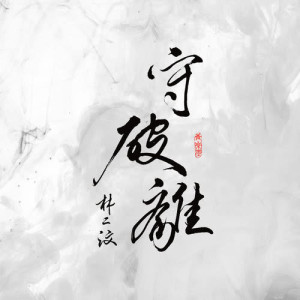 守破離
林二汶